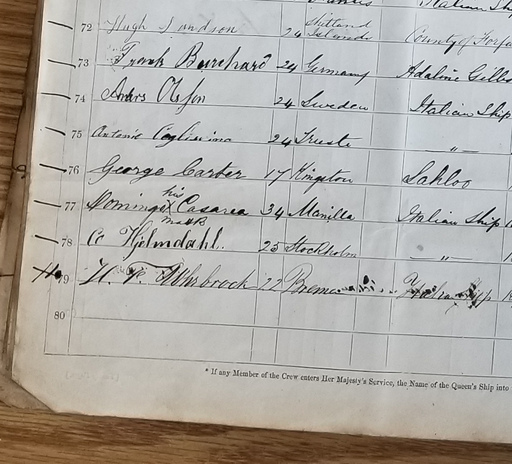 Italian Ship
72 Hugh 24 Shetland Islands County of Forfar
73 Frank Burchard 24 Germany Adaline Gills
74 Anders Olsson 24 Sweden Italian Ship
75 Antonio 24 Trieste "
76 George Carter 17 Kingston Sahloo
77 Domingo his X mark Casarea 34 Manilla Italian Ship
78 C Hjelmdahl. 25 Stockholm "
79 H. F. 22 Bremen
80
* If any Member of the Crew enters Her Majesty's Service, the Name of the Queen's Ship into